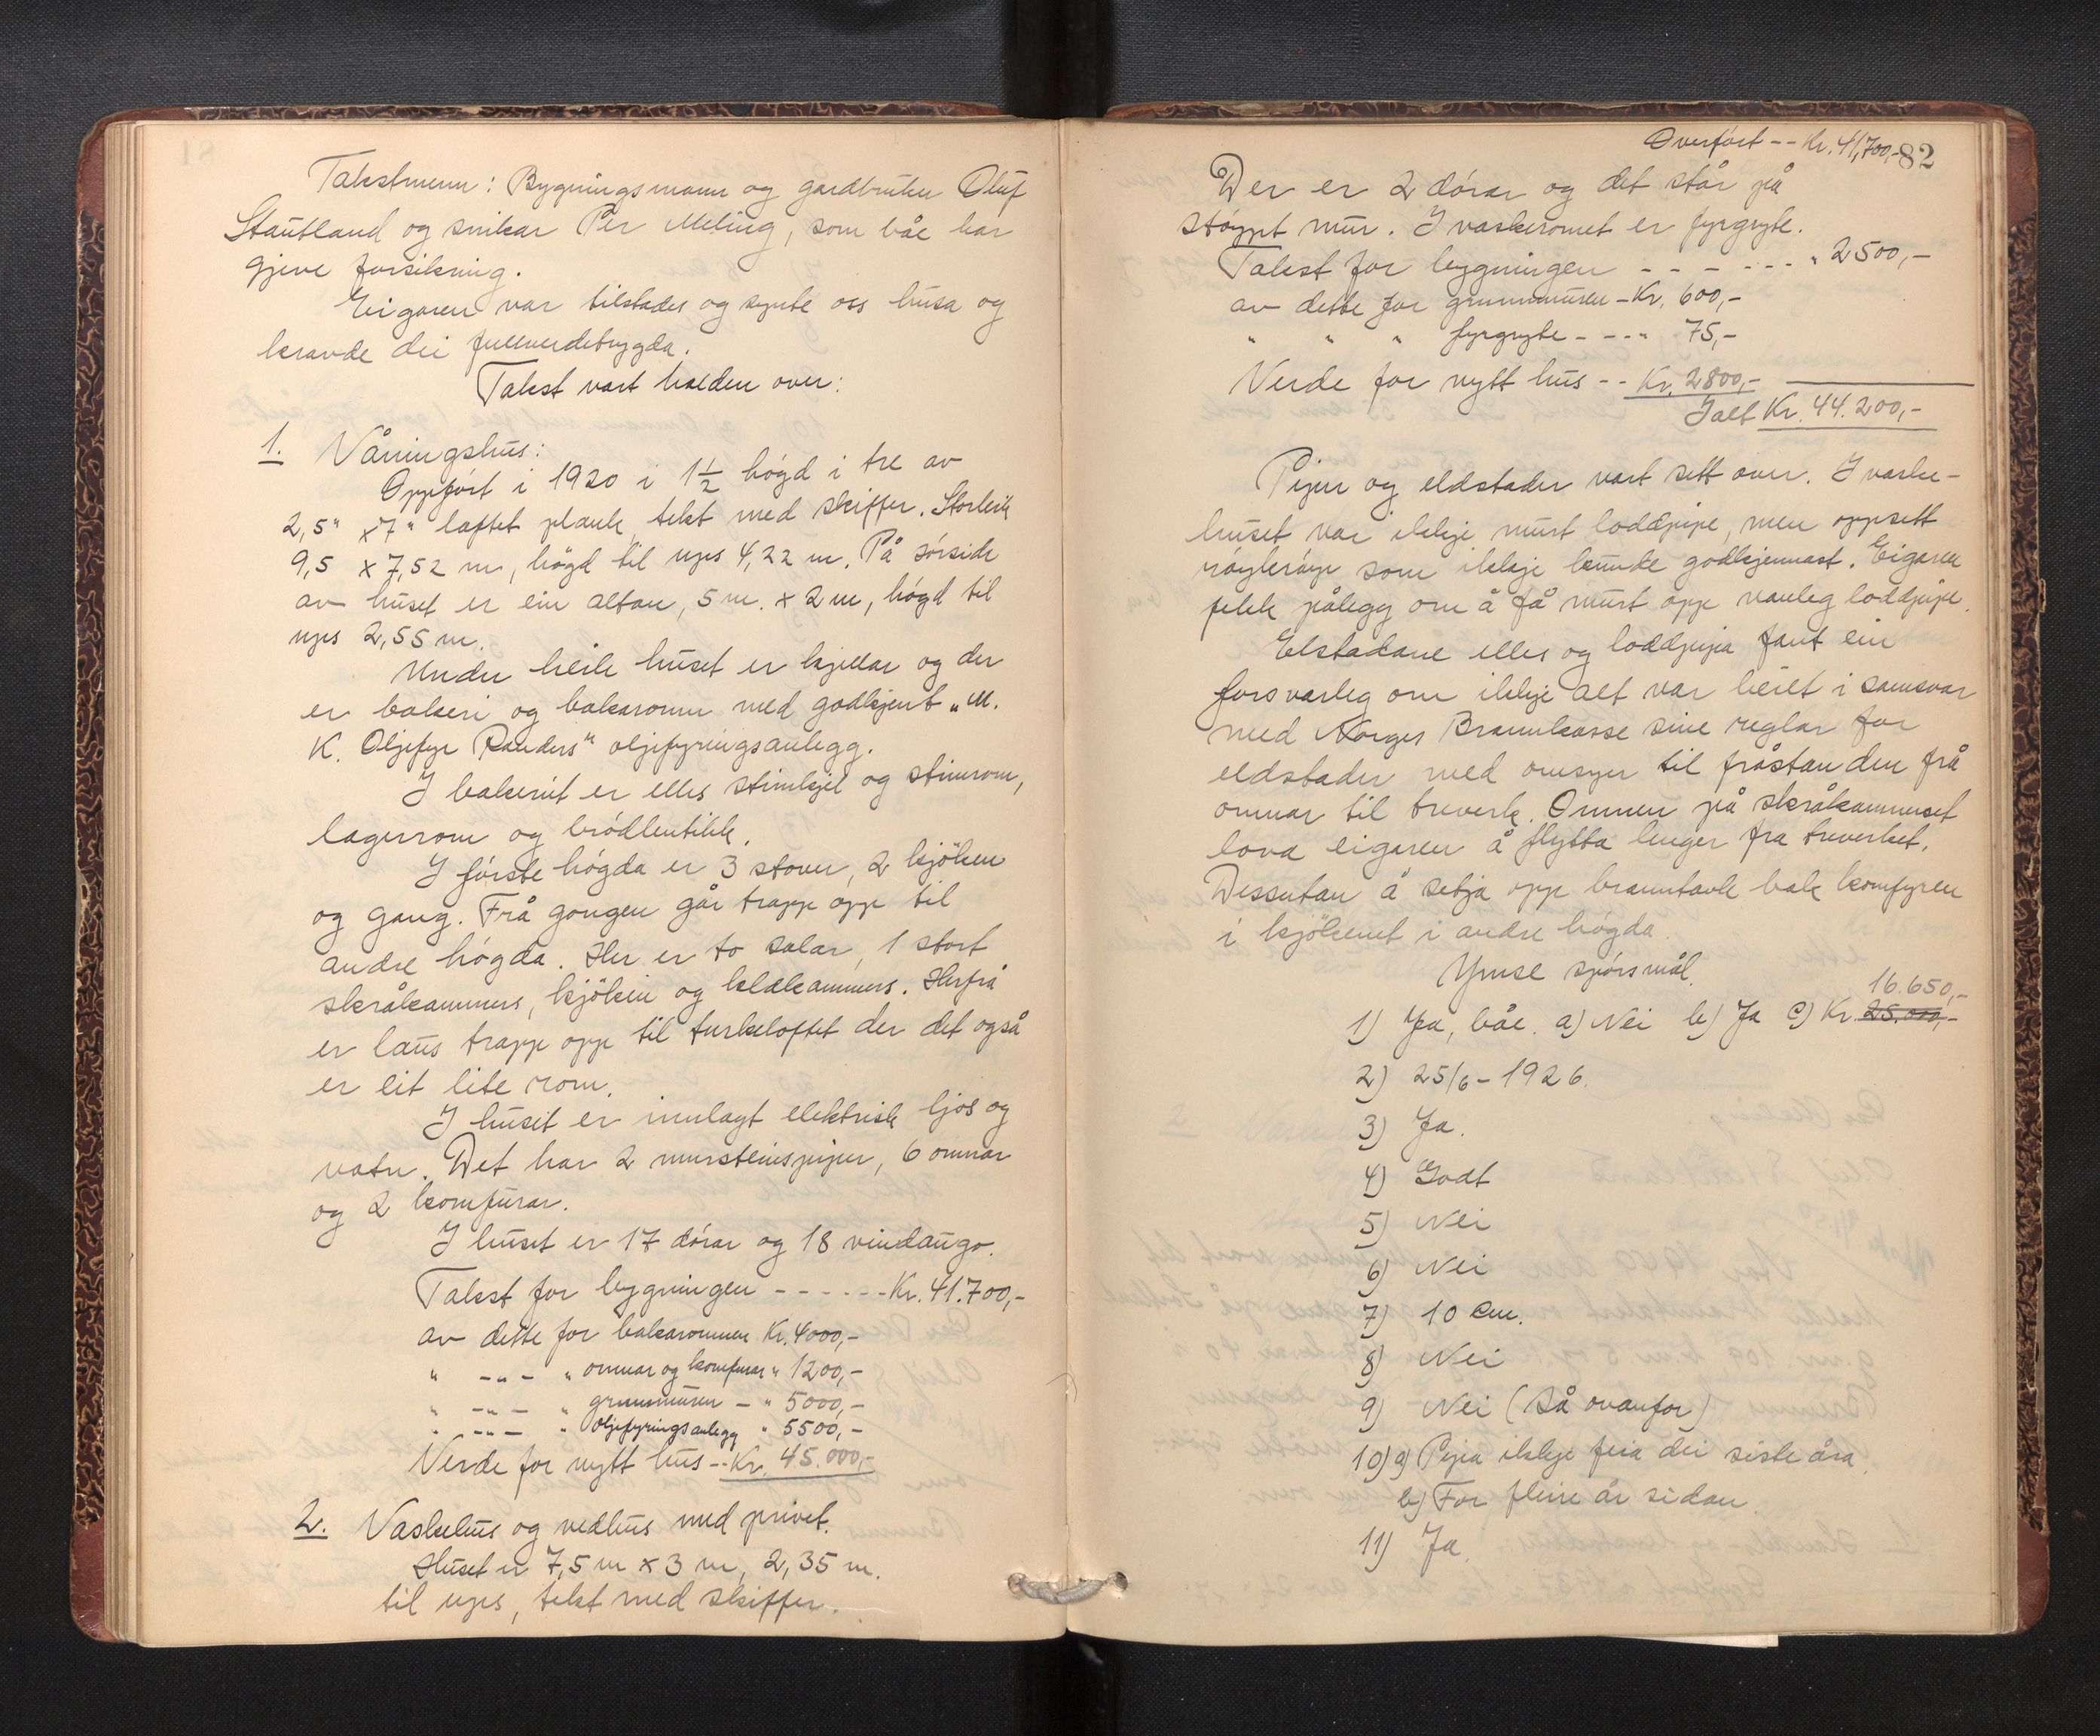 Takstmenn: Bygningsmann og gardbruker Oluf
Stautland og snikar Per Meling, som båe har
gjeve forsikring.
Eigaren var tilstades og synte oss husa og
kravde dei fullverdetrygda.
Takst vart halden over:
1. Våningshus:
Oppført i 1920 i 1½ høgd i tre av
2,5" x 7" laftet plank, tekt med skiffer. Storleik
9,5 x 7,52 m, høgd til ups 4,22 m. På sørside
av huset er ein altan, 5 m. x 2 m, høgd til
ups 2,55 m.
Under heile huset er kjellar og der
er bakeri og bakaromn med godkjent „M.
K. Oljefyr Randers" oljefyringsanlegg.
I bakeriit er elles stimkjel og stimrom,
lagerrom og brødbutikk.
I første høgda er 3 stover, 2 kjöken
og gang. Frå gongen går trapp opp til
andre høgda. Her er to salar, 1 stort
skråkammers, kjöken og klekammers. Herfrå
er laus trapp opp til turkeloftet der det også
er eit lite rom.
I huset er innlagt elektrisk ljos og
vatn. Det har 2 mursteinspipur, 6 omnar
og 2 komfurar.
I huset er 17 dørar og 18 vindaugo.
Takst for bygningen - - - - - - Kr. 41.700,-
av dette for bakaromnen Kr. 4000,-
" -"- " omnar og komfurar " 1200,-
" -"- " grunnmuren - " 5000,-
" -"- " oljefyringsanlegg " 5500,-
Verde for nytt hus -- Kr. 45.000,-
2. Vaskehus og vedhus med privet.
Huset er 7,5 m x 3 m, 2,35 m.
til ups, tekt med skiffer.
Overført -- Kr. 41,700,-
82
Der er 2 dørar og det står på
støypt mur. I vaskeromet er fyrgryte.
Takst for bygningen - - - - - - " 2500,-
av dette for grunnmuren - Kr. 600,-
" " " fyrgryte - - - " 75,-
Verde for nytt hus -- Kr. 2800,-
Ialt Kr. 44.200,-
Pipur og eldstader vart sett over. I vaske-
huset var ikkje murt loddpipe, men oppsett
røykrøyr som ikkje kunde godkjennast. Eigaren
fekk pålegg om å få murt opp vanleg loddpipe.
Elstadane elles og loddpipa fant ein
forsvarleg om ikkje alt var heilt i samsvar
med Norges Brannkasse sine reglar for
eldstader med omsyn til fråstanden frå
omnar til treverk. Omnen på skråkammerset
lova eigaren å flytta lenger fra treverket.
Dessutan å setja opp branntavle bak komfyren
i kjökenet i andre høgda.
Ymse spørsmål.
16.650,-
1) Ja, båe. a) Nei b) Ja c) Kr. 25.000,-
2) 25/6 - 1926.
3) Ja.
4) Godt
5) Nei
6) Nei
7) 10 cm.
8) Nei
9) Nei (Så ovanfor)
10) a) Pipa ikkje feia dei siste åra.
b) For fleire år sidan.
11) Ja.